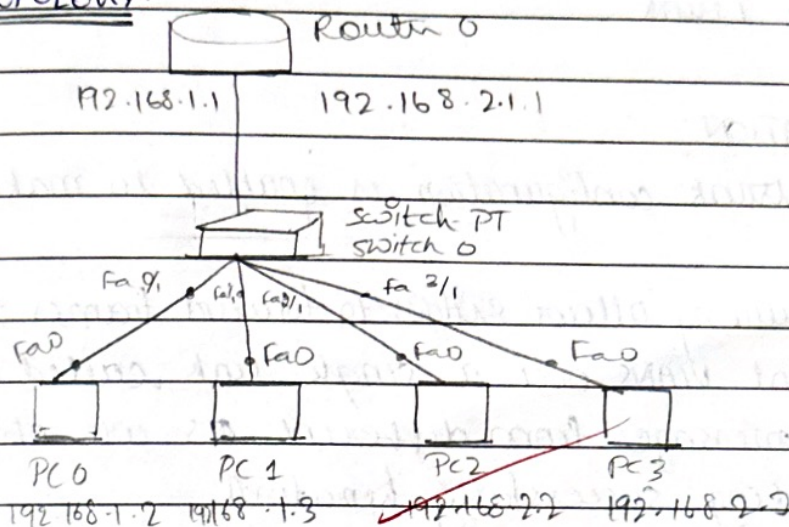 Router 0
192.168.1.1 192.168.2.1.1
switch-PT
switch 0
Fa 0/1 Fa 2/1
Fa0 Fa0 Fa0 Fa0
PC0 PC1 PC2 PC3
192.168.1.2 192.168.1.3 192.168.2.2 192.168.2.3